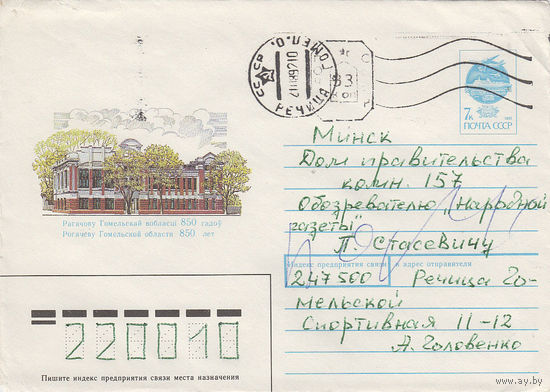 СССР
ГОМЕЛ.О.
РЕЧИЦА
7к
ПОЧТА СССР
Минск
Дом правительства
комн. 157
Обозревателю „Народной
газеты"
П. Стасевичу
Рагачову Гомельскай вобласці 850 гадоў
Рогачёву Гомельской области 850 лет
Индекс предприятия связи и адрес отправителя
247500 Речица Го-
мельской
Спортивная 11-12
А. Головенко
220010
Пишите индекс предприятия связи места назначения
www.ay.by